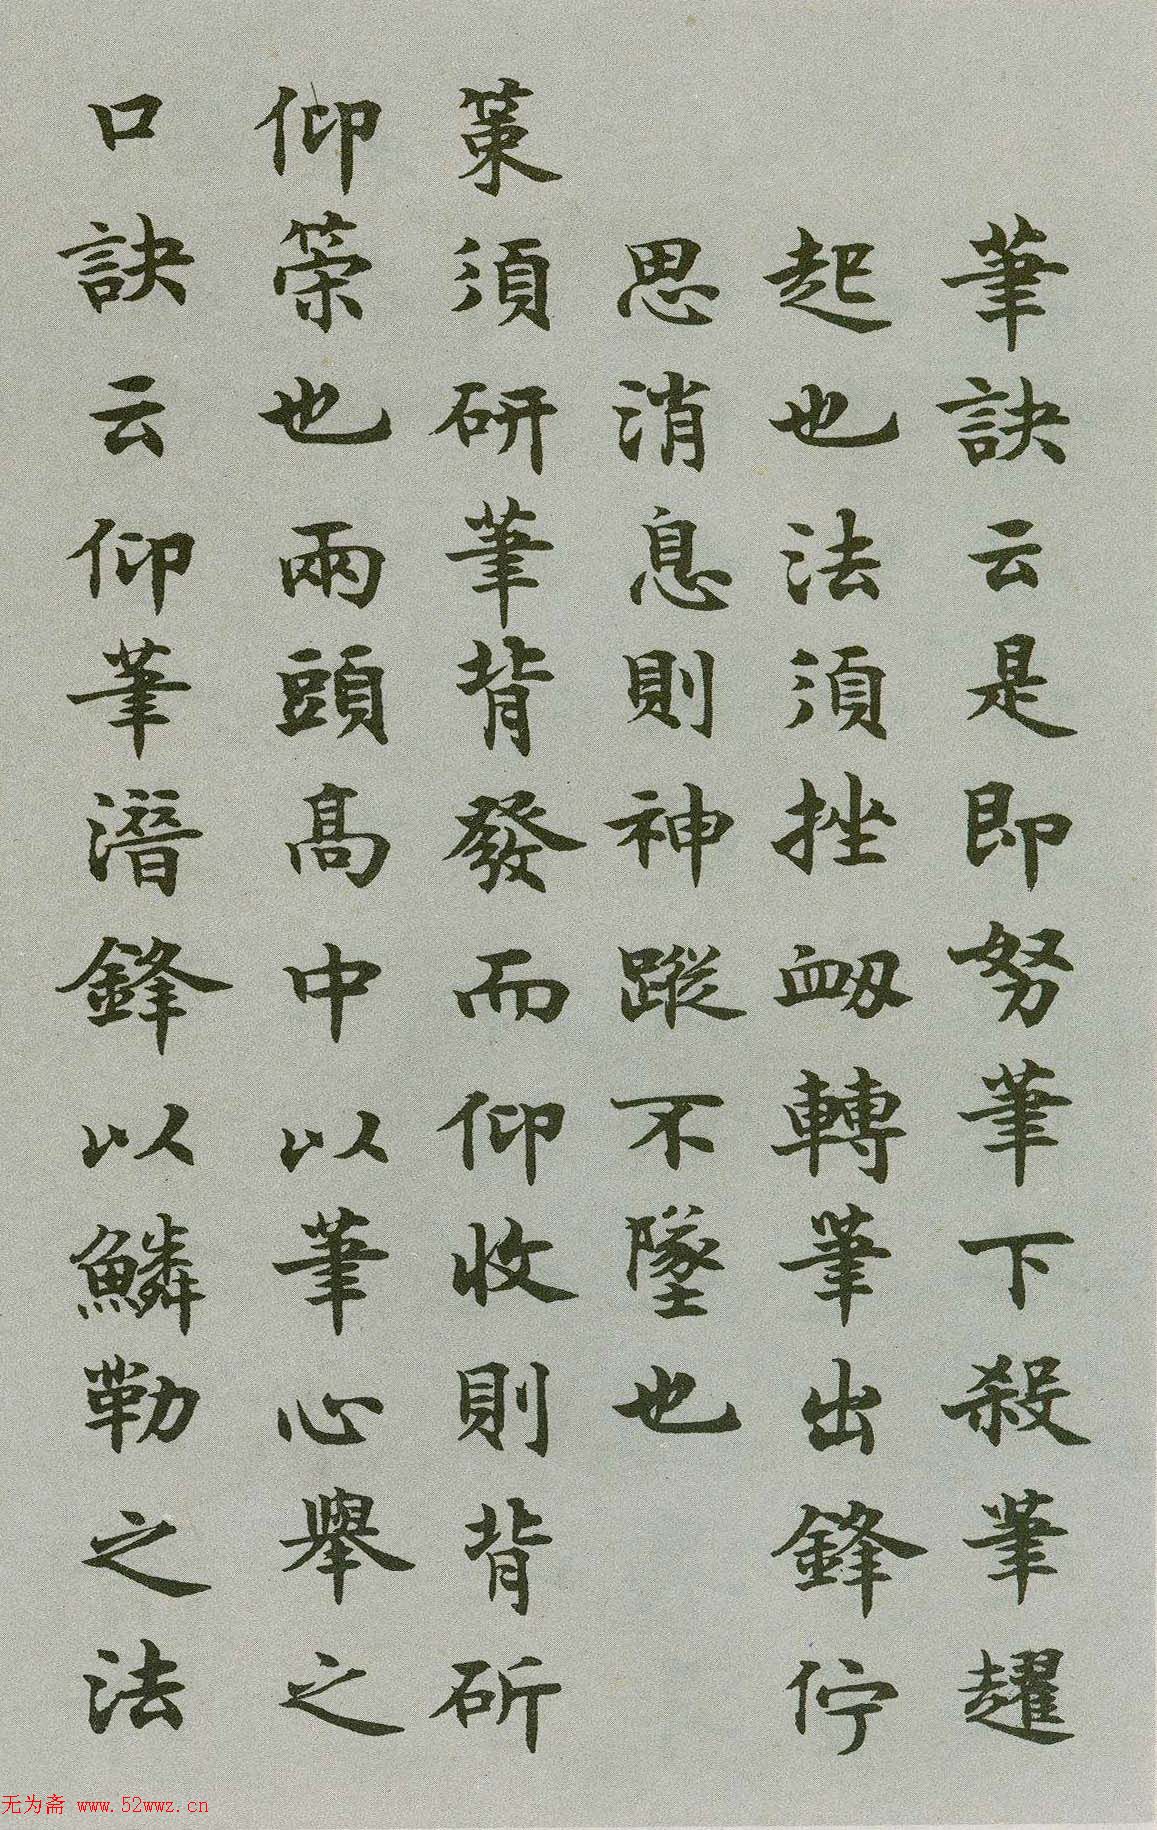 筆訣云是即努筆下殺筆趯
起也法須挫衂轉筆出鋒佇
思消息則神蹤不墜也
策須研筆背發而仰收則背斫
仰策也兩頭高中以筆心舉之
口訣云仰筆潛鋒以鱗勒之法
无为斋 www.52wwz.cn